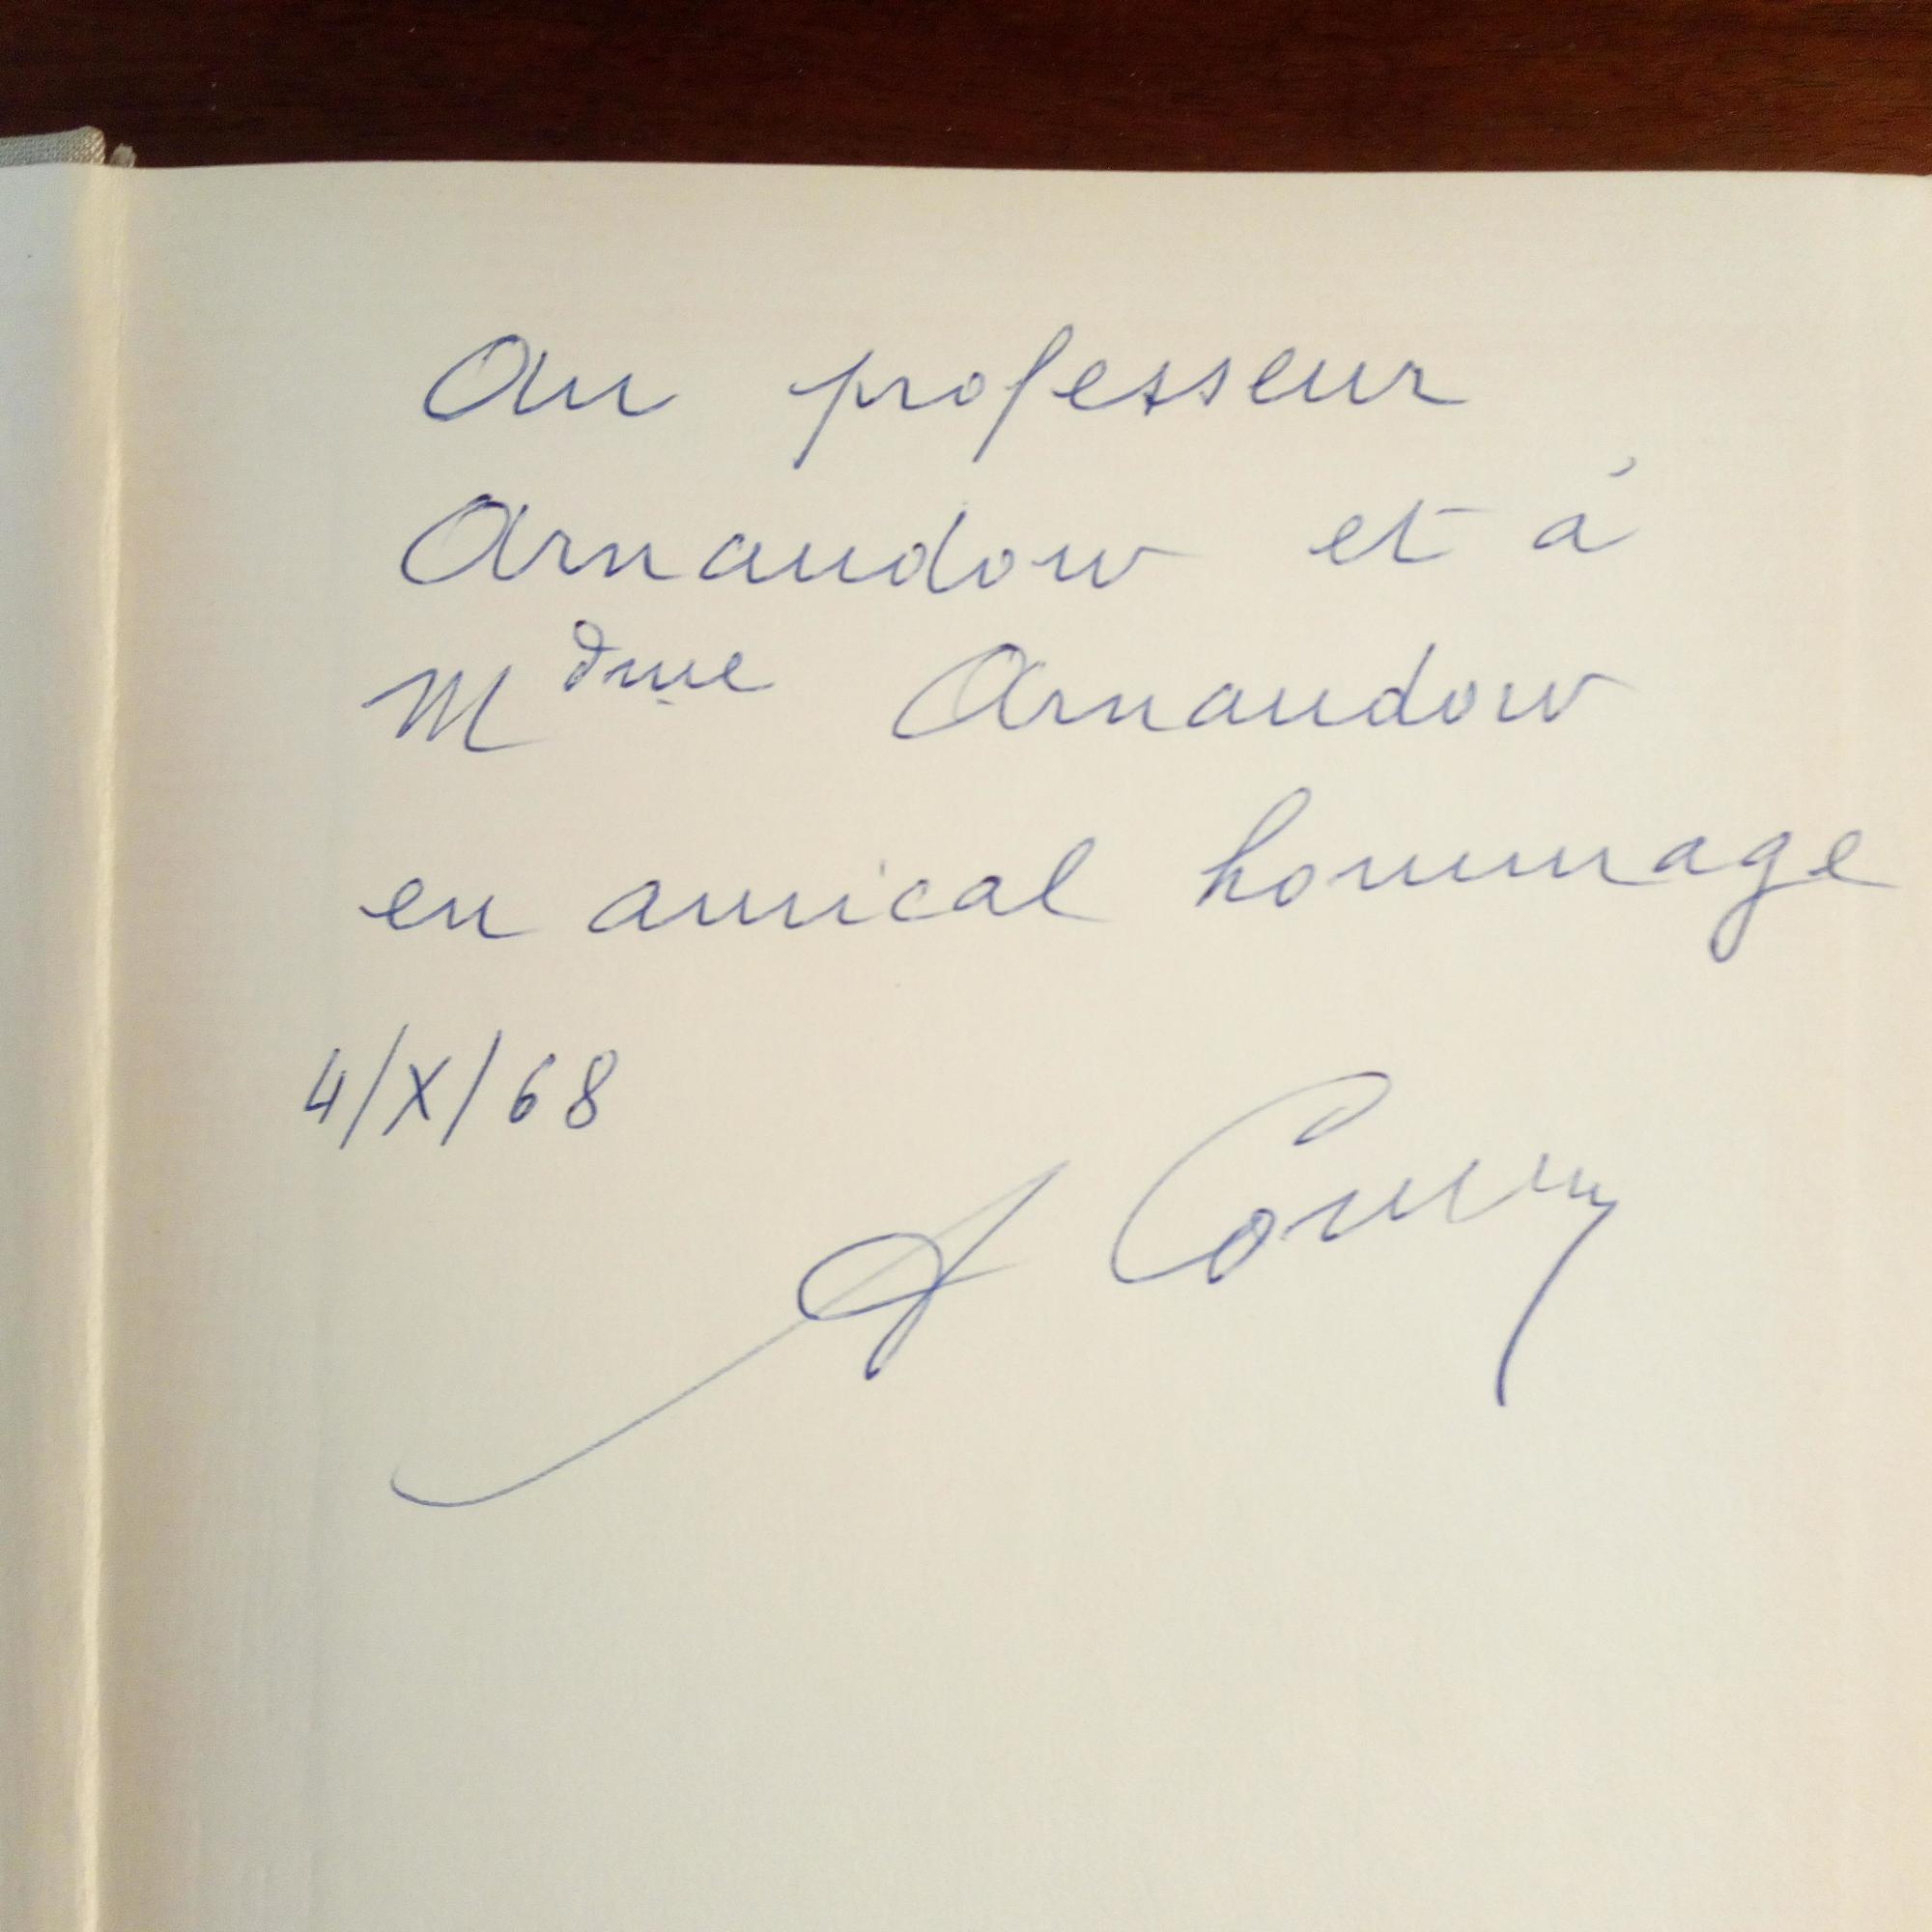 Au professeur
Arnaudow et à
Mdme Arnaudow
en amical hommage
4/X/68
A